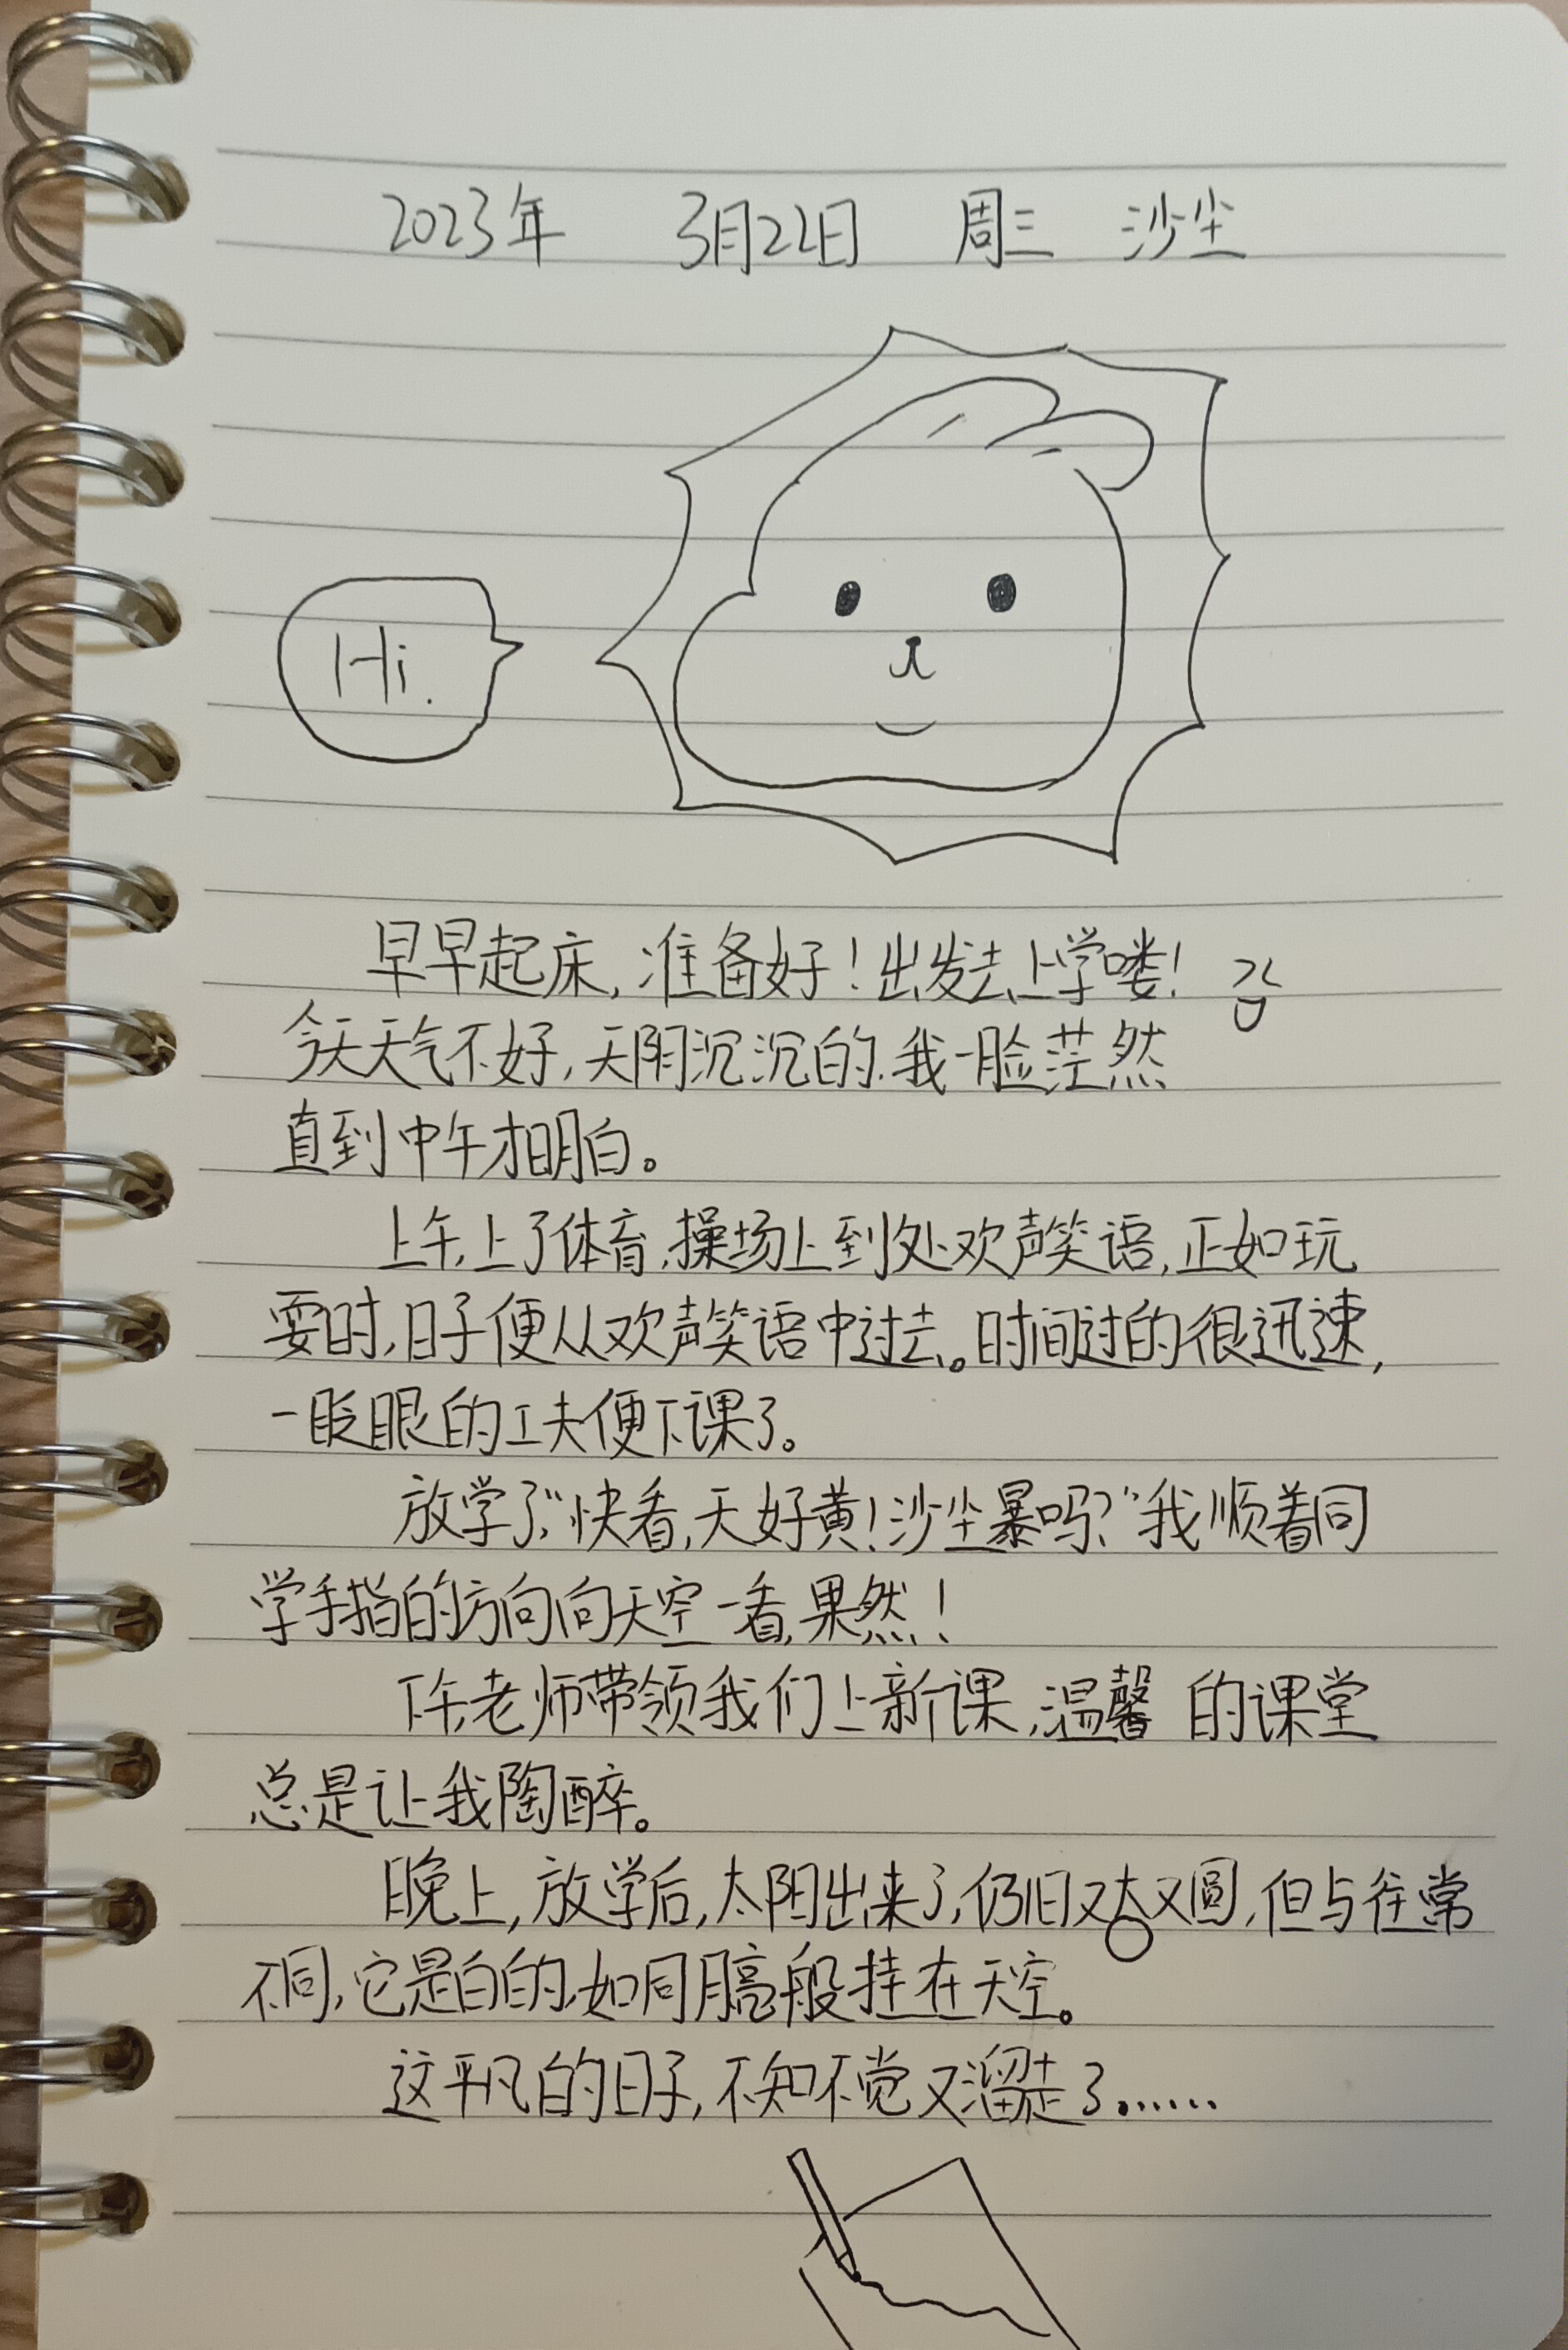 2023年 3月22日 周三 沙尘
Hi.
早早起床,准备好!出发去上学喽!
今天天气不好,天阴沉沉的.我一脸茫然
直到中午才明白。
上午,上了体育,操场上到处欢声笑语,正如玩
耍时,日子便从欢声笑语中过去。时间过的很迅速,
一眨眼的工夫便下课了。
放学了“快看,天好黄!沙尘暴吗?”我顺着同
学手指的方向向天空一看,果然!
下午,老师带领我们上新课,温馨的课堂
总是让我陶醉。
晚上,放学后,太阳出来了,仍旧又大又圆,但与往常
不同,它是白的,如同月亮般挂在天空。
这平凡的日子,不知不觉又溜走了......